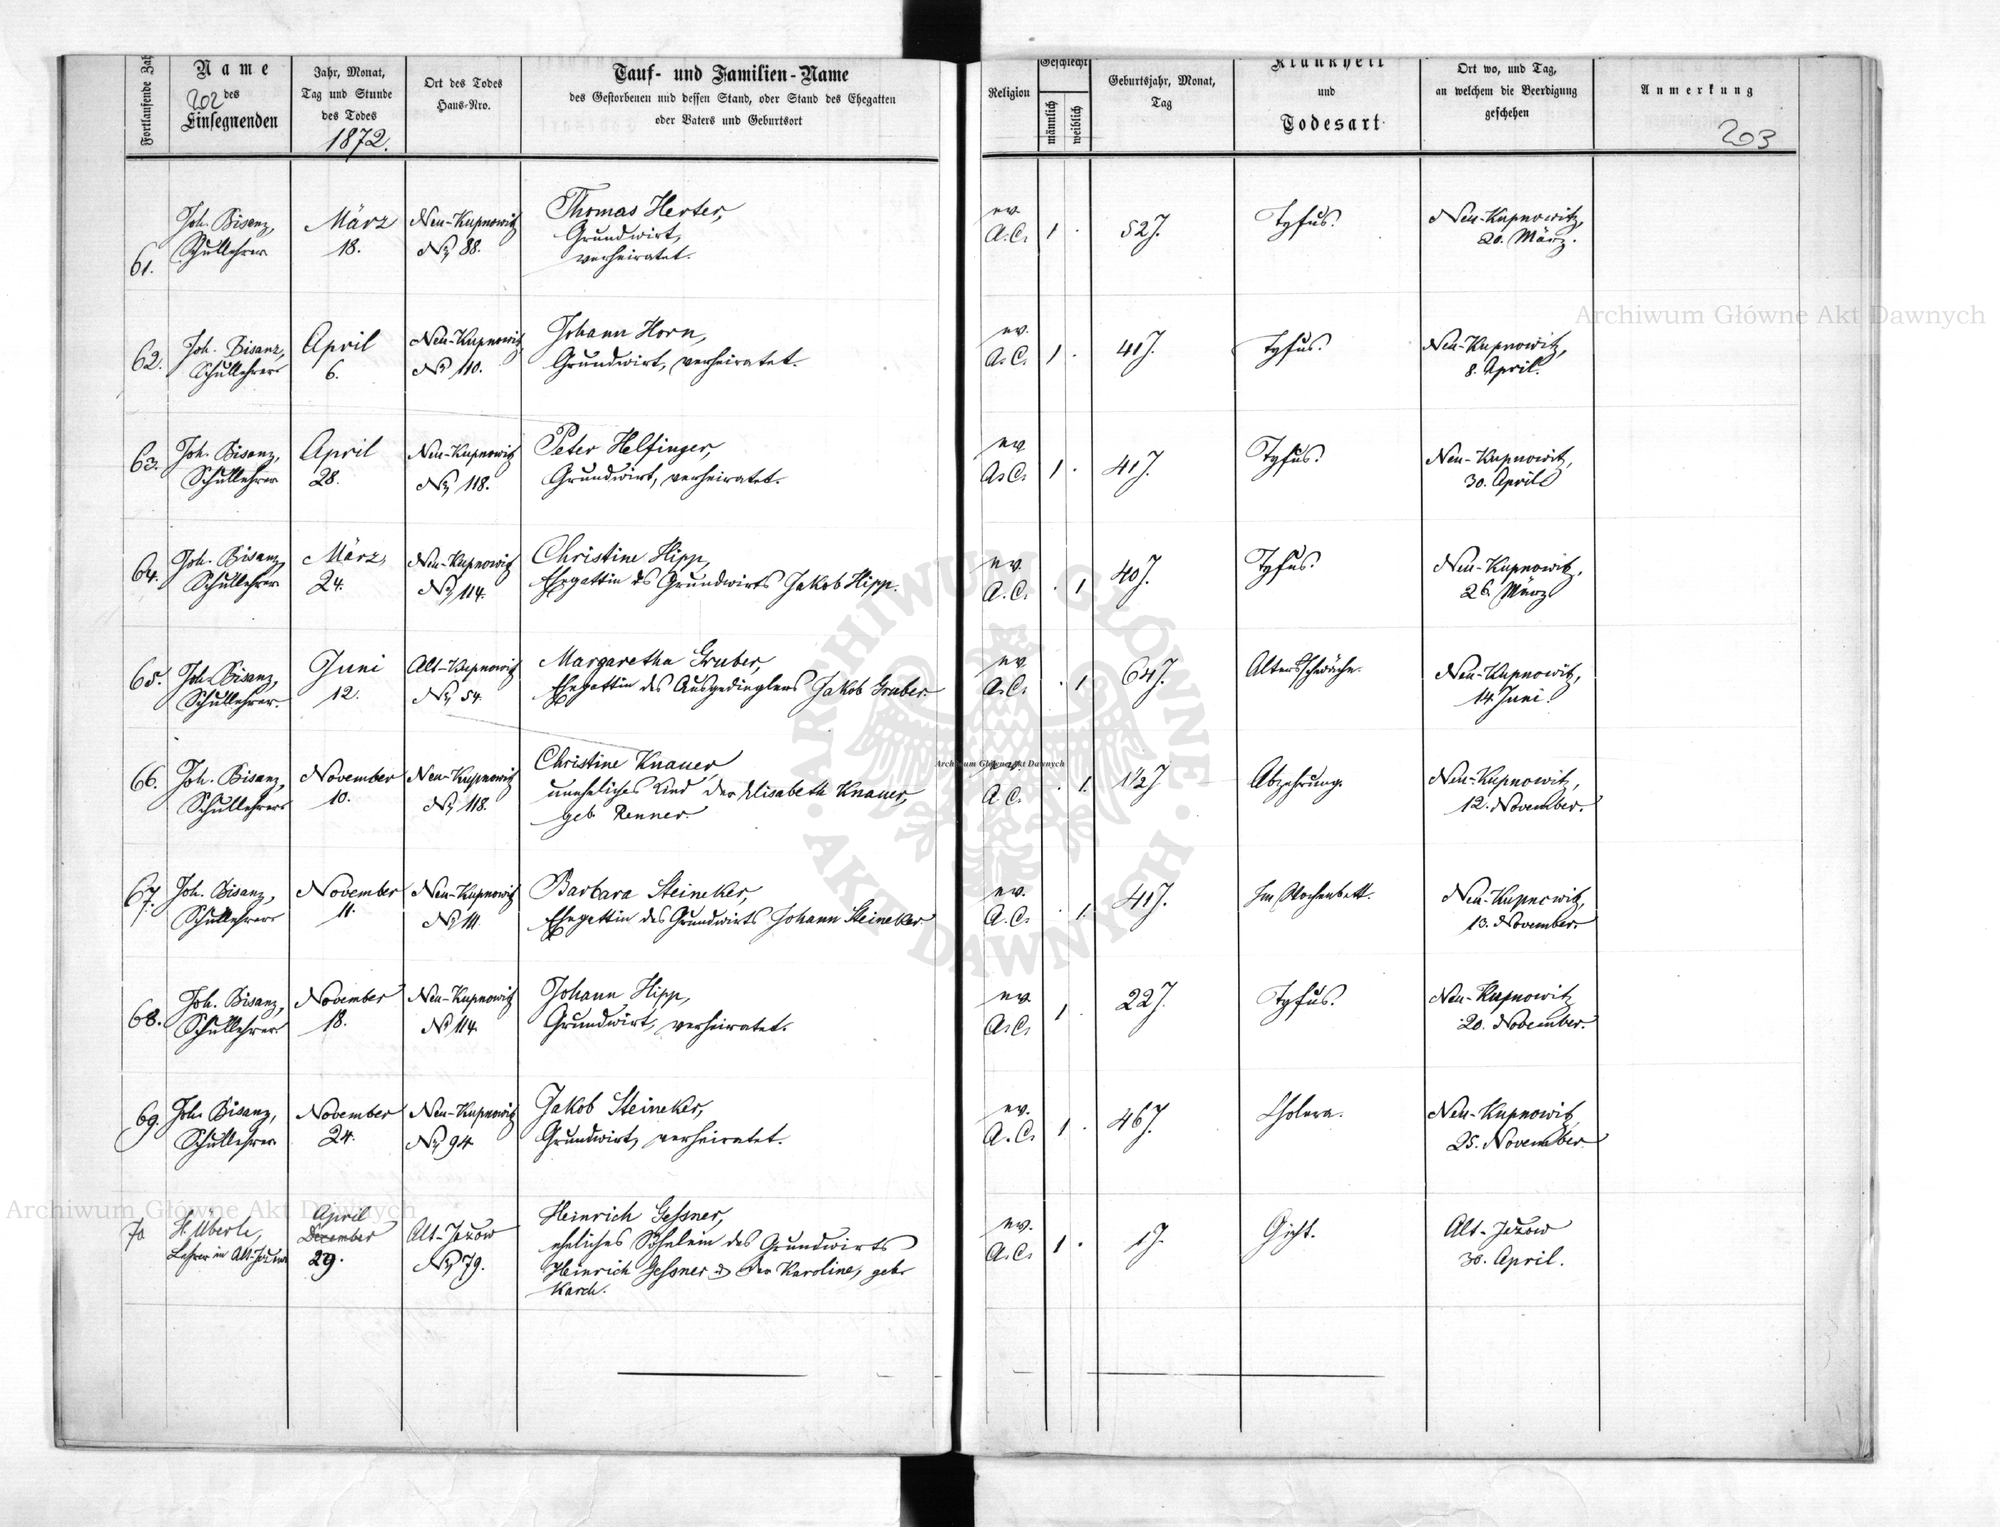 Fortlaufende Zah
Name
202 des
Einsegnenden
Jahr, Monat,
Tag und Stunde
des Todes
1872.
Ort des Todes
Haus-Nro.
Tauf- und Familien-Name
des Gestorbenen und dessen Stand, oder Stand des Ehegatten
oder Vaters und Geburtsort
Religion
Geschlecht
männlich
weiblich
Geburtsjahr, Monat,
Tag
Krankheit
und
Todesart
Ort wo, und Tag,
an welchem die Beerdigung
geschehen
Anmerkung
203
61.
Joh. Bisanz,
Schullehrer
März
18.
Neu-Kupnowitz
No 88.
Thomas Herter,
Grundwirt,
verheiratet.
ev.
A.C.
1
52 J.
Tyfus.
Neu-Kupnowitz,
20. März.
62.
Joh. Bisanz,
Schullehrer
April
6.
Neu-Kupnowitz
No 110.
Johann Horn,
Grundwirt, verheiratet.
ev.
A.C.
1
41 J.
Tyfus.
Neu-Kupnowitz,
8. April.
63.
Joh. Bisanz,
Schullehrer
April
28.
Neu-Kupnowitz
No 118.
Peter Helfinger,
Grundwirt, verheiratet.
ev.
A.C.
1
41 J.
Tyfus.
Neu-Kupnowitz,
30. April
64.
Joh. Bisanz,
Schullehrer
März
24.
Neu-Kupnowitz
No 114.
Christine Hipp,
Ehegattin des Grundwirts Jakob Hipp.
ev.
A.C.
1
40 J.
Tyfus.
Neu-Kupnowitz,
26. März
65.
Joh. Bisanz,
Schullehrer.
Juni
12.
Alt-Kupnowitz
No 54.
Margaretha Gruber,
Ehegattin des Ausgedinglers Jakob Gruber.
ev.
A.C.
1
64 J.
Altersschwäche.
Neu-Kupnowitz,
14. Juni.
66.
Joh. Bisanz,
Schullehrer
November
10.
Neu-Kupnowitz
No 118.
Christine Knauer,
uneheliches Kind der Elisabeth Knauer,
geb. Renner.
ev.
A.C.
1
1 1/2 J
Abzehrung.
Neu-Kupnowitz,
12. November.
67.
Joh. Bisanz,
Schullehrer
November
11.
Neu-Kupnowitz
No 111.
Barbara Steineker,
Ehegattin des Grundwirts Johann Steineker
ev.
A.C.
1
41 J.
Im Wochenbett.
Neu-Kupnowitz,
13. November.
68.
Joh. Bisanz,
Schullehrer
November
18.
Neu-Kupnowitz
No 114.
Johann Hipp,
Grundwirt, verheiratet.
ev.
A.C.
1
22 J.
Tyfus.
Neu-Kupnowitz
20. November.
69.
Joh. Bisanz,
Schullehrer
November
24.
Neu-Kupnowitz
No 94
Jakob Steineker,
Grundwirt, verheiratet.
ev.
A.C.
1
46 J.
Cholera.
Neu-Kupnowitz
25. November
70
H. Uberle,
Lehrer in Alt-Jazow
April
December
29.
Alt-Jazow
No 79.
Heinrich Gessner,
eheliches Söhnlein des Grundwirts
Heinrich Gessner & der Karoline, geb.
Karch.
ev.
A.C.
1
1 J.
Gicht.
Alt-Jazow
30. April.
Archiwum Główne Akt Dawnych
Archiwum Główne Akt Dawnych
Archiwum Główne Akt Dawnych
ARCHIWUM GŁÓWNE · AKT DAWNYCH ·